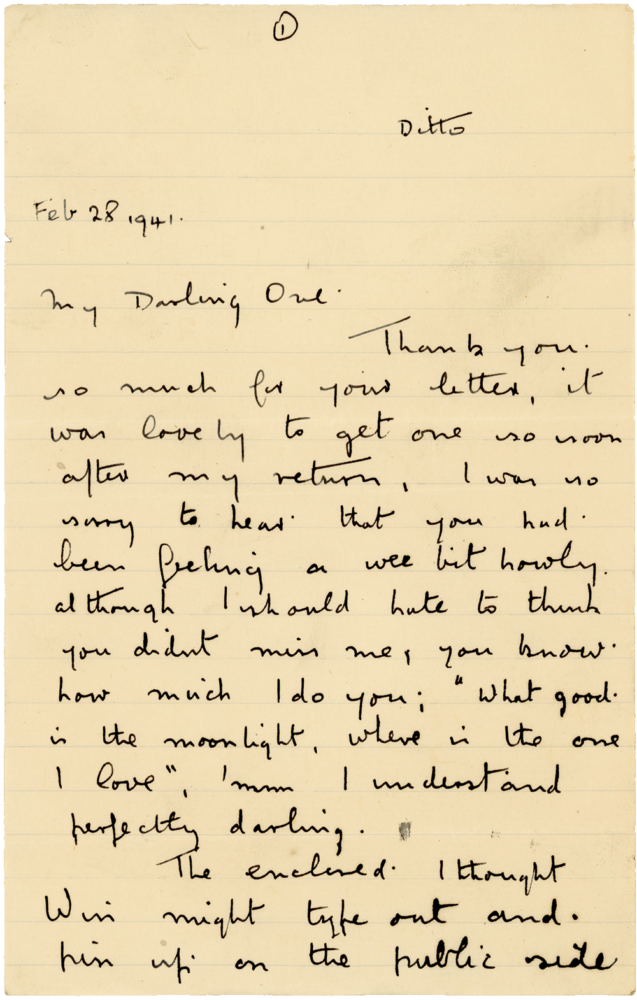 1
Ditto
Feb 28 1941.
My Darling One.
Thank you.
so much for your letter, it
was lovely to get one so soon
after my return, I was so
sorry to hear that you had
been feeling a wee bit howly.
although I should hate to think
you didnt miss me, you know
how much I do you; "What good
is the moonlight, where is the one
I love", 'mmm I understand
perfectly darling.
The enclosed I thought
Win might type out and.
pin up on the public side